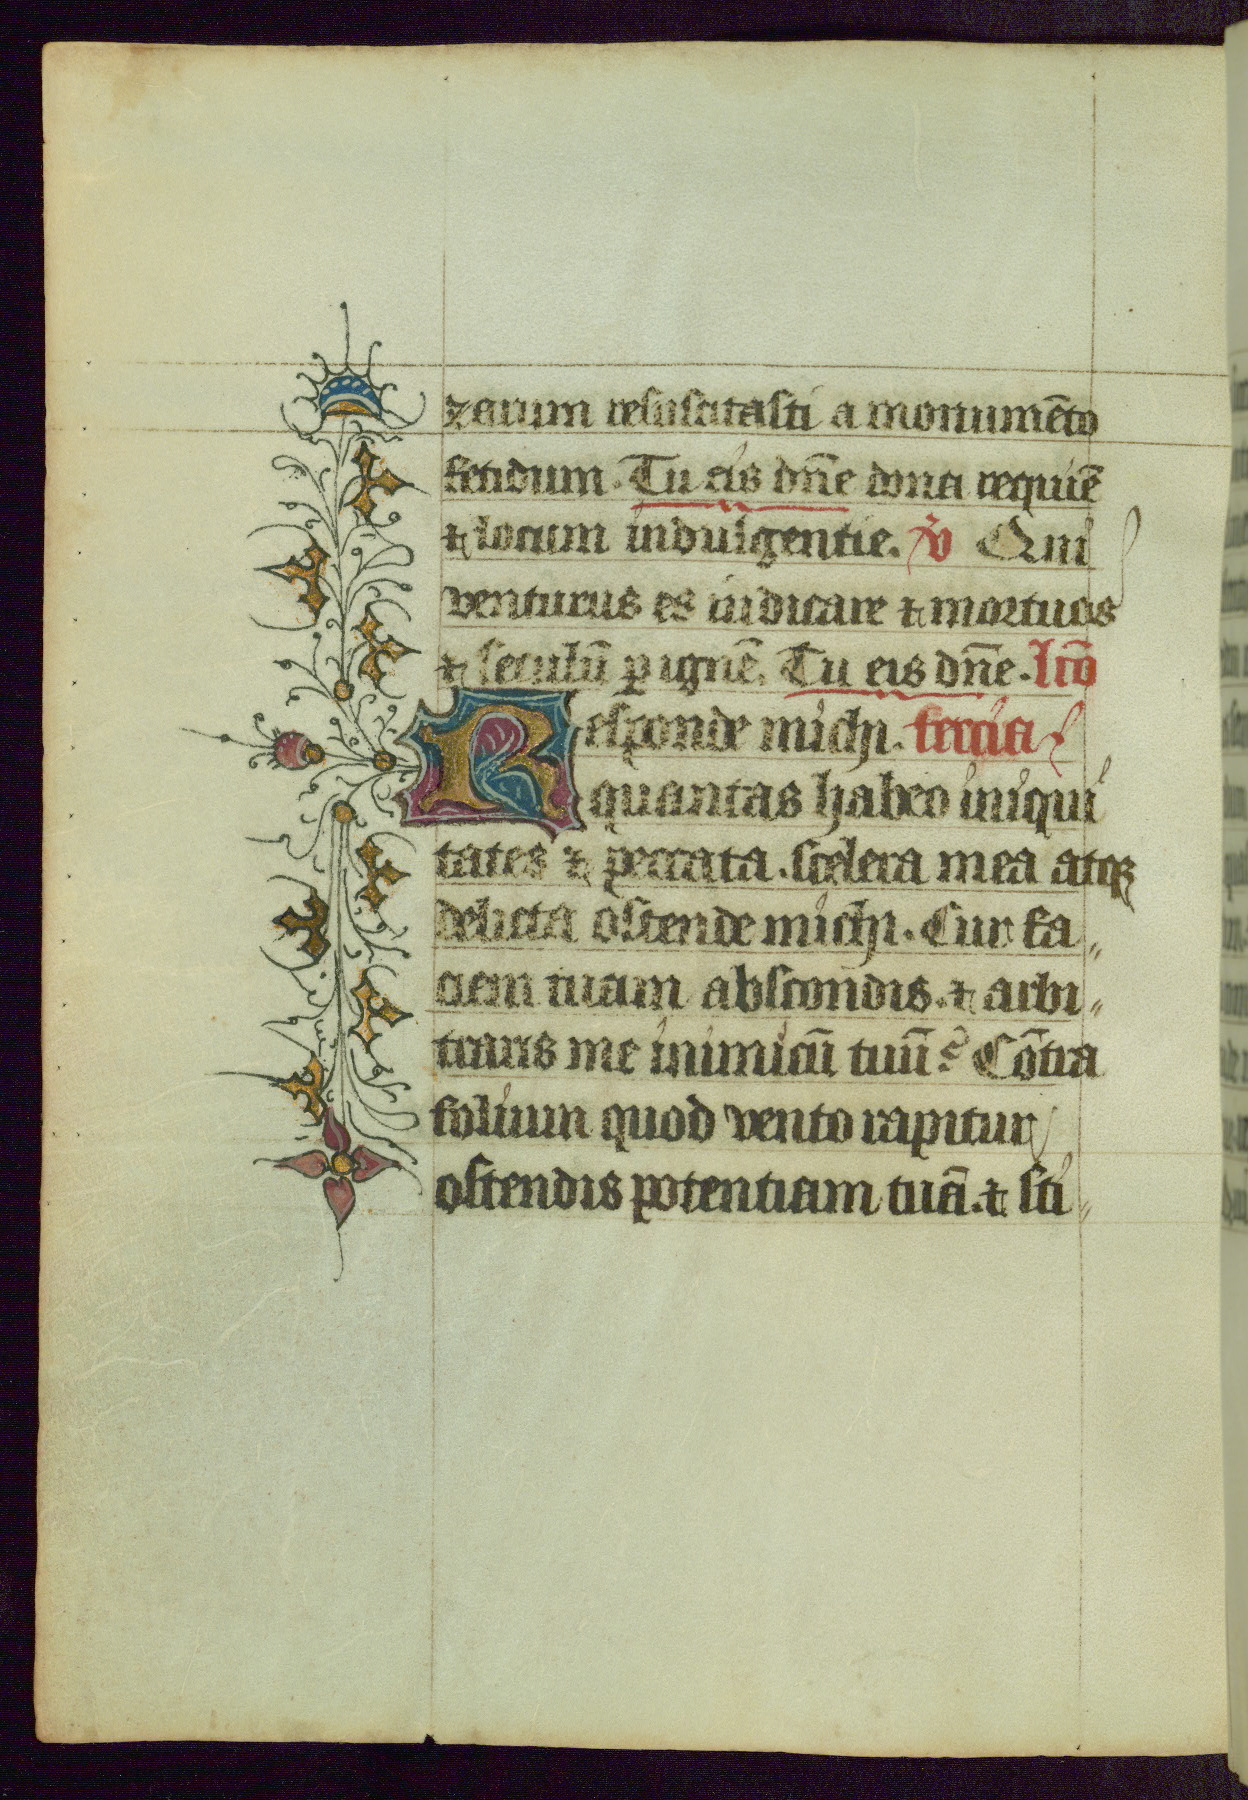 zarum resuscitasti a monumēto
fetidum. Tu eis dn̄e dona requiē
⁊ locum indulgentie. ℣ Qui
venturus es iudicare ⁊ mortuos
⁊ seculū p ignē. Tu eis dn̄e. lcō
Responde michi. tercia
quantas habeo iniqui
tates ⁊ peccata. scelera mea atqꝫ
delicta ostende michi. Cur fa„
ciem tuam abscondis. ⁊ arbi„
traris me inimicū tuū? Cōtra
folium quod vento rapitur
ostendis potentiam tuā. ⁊ sti„